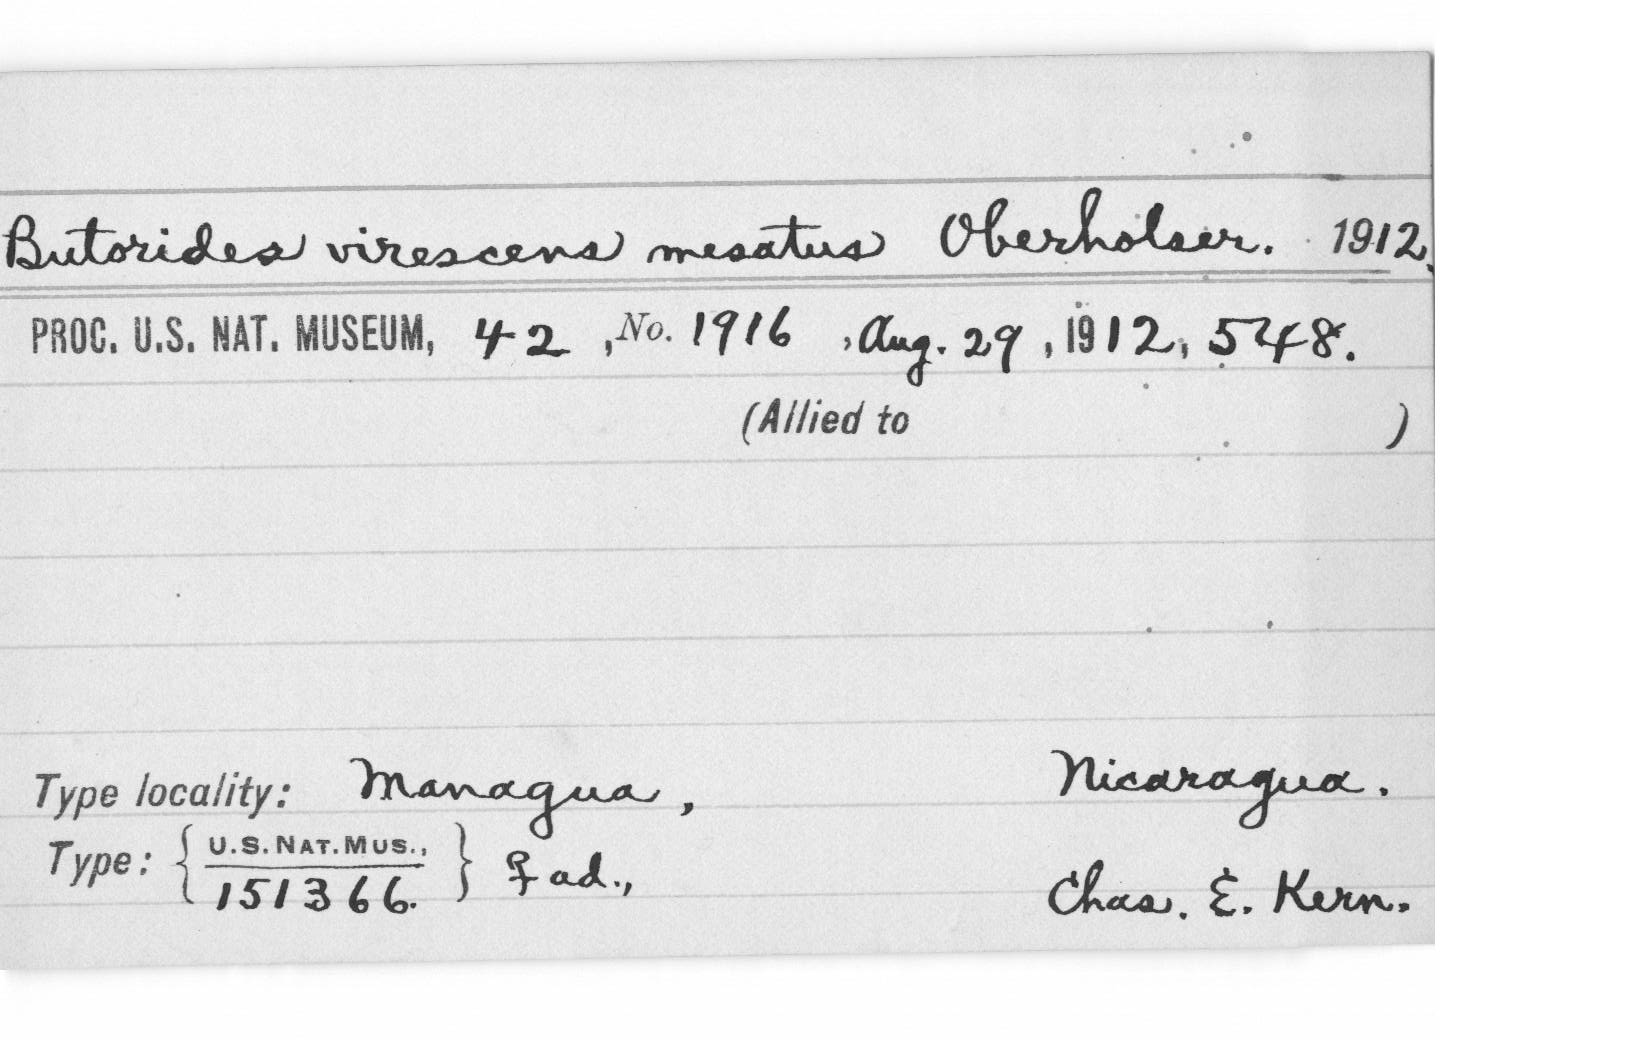 Butorides virescens mesatus Oberholser. 1912.
PROC. U.S. NAT. MUSEUM, 42, No. 1916, Aug. 29, 1912, 548.
(Allied to )
Type locality: Managua, Nicaragua.
Type: { U.S. NAT. MUS., 151366. } ♀ ad., Chas. E. Kern.